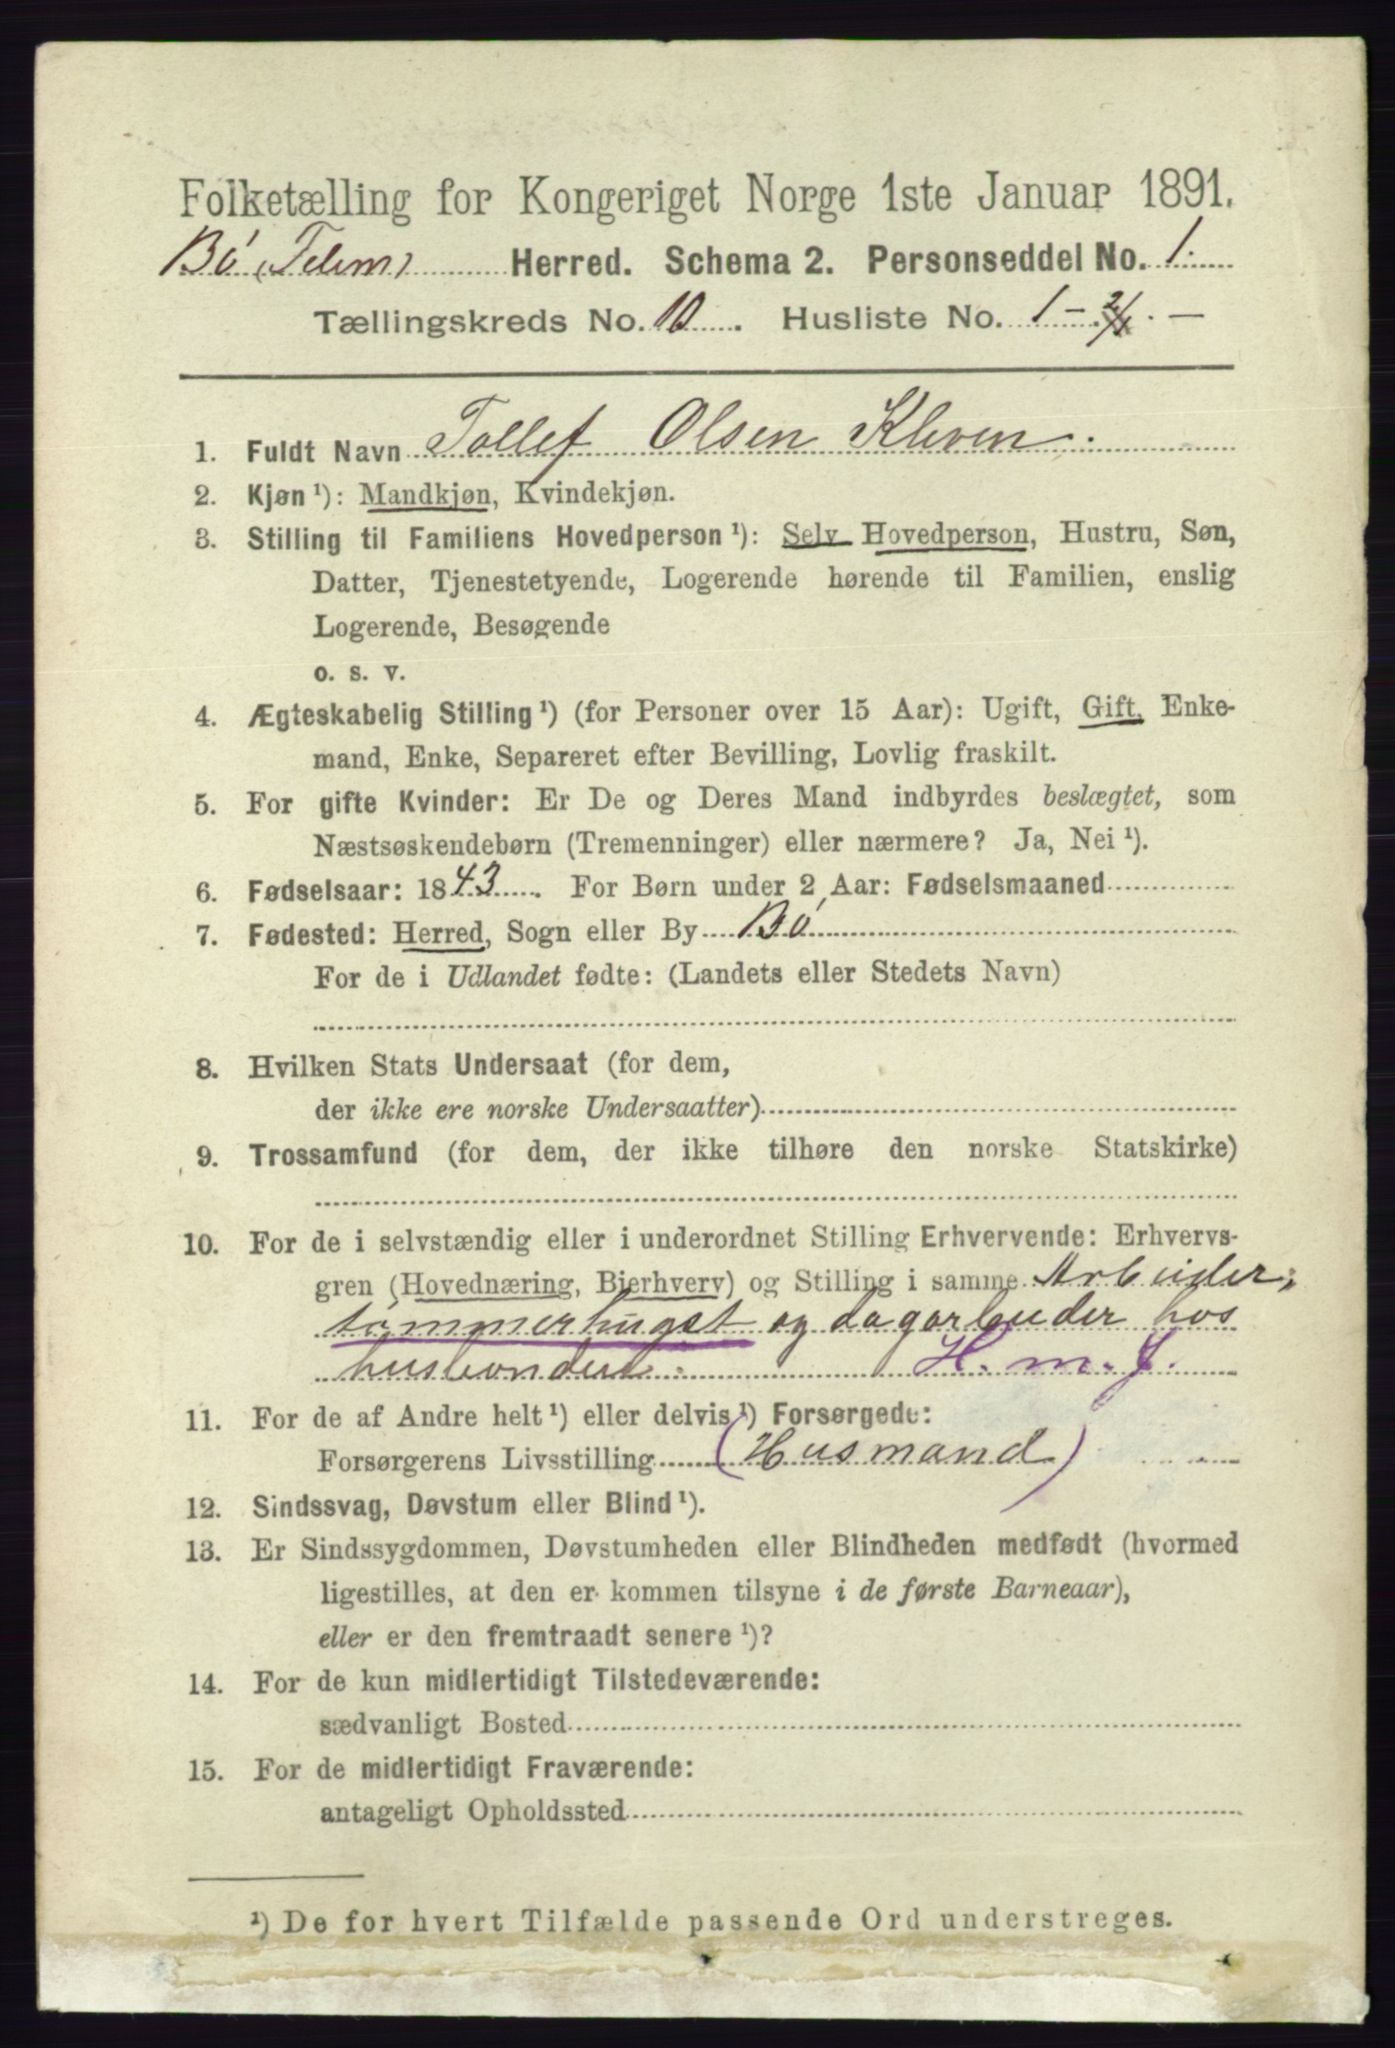 Folketælling for Kongeriget Norge 1ste Januar 1891.
Bø (Telem) Herred. Schema 2. Personseddel No. 1.
Tællingskreds No. 10. Husliste No. 1 -
1. Fuldt Navn Tollef Olsen Kleven.
2. Kjøn ¹): Mandkjøn, Kvindekjøn.
3. Stilling til Familiens Hovedperson ¹): Selv Hovedperson, Hustru, Søn,
Datter, Tjenestetyende, Logerende hørende til Familien, enslig
Logerende, Besøgende
o. s. v.
4. Ægteskabelig Stilling ¹) (for Personer over 15 Aar): Ugift, Gift, Enke-
mand, Enke, Separeret efter Bevilling, Lovlig fraskilt.
5. For gifte Kvinder: Er De og Deres Mand indbyrdes beslægtet, som
Næstsøskendebørn (Tremenninger) eller nærmere? Ja, Nei ¹).
6. Fødselsaar: 1843. For Børn under 2 Aar: Fødselsmaaned
7. Fødested: Herred, Sogn eller By Bø
For de i Udlandet fødte: (Landets eller Stedets Navn)
8. Hvilken Stats Undersaat (for dem,
der ikke ere norske Undersaatter)
9. Trossamfund (for dem, der ikke tilhøre den norske Statskirke)
10. For de i selvstændig eller i underordnet Stilling Erhvervende: Erhvervs-
gren (Hovednæring, Bierhverv) og Stilling i samme Arbeider,
tømmerhugst og dagarbeider hos
husbonden. H. m. J.
11. For de af Andre helt ¹) eller delvis ¹) Forsørgede:
Forsørgerens Livsstilling (Husmand)
12. Sindssvag, Døvstum eller Blind ¹).
13. Er Sindssygdommen, Døvstumheden eller Blindheden medfødt (hvormed
ligestilles, at den er kommen tilsyne i de første Barneaar),
eller er den fremtraadt senere ¹)?
14. For de kun midlertidigt Tilstedeværende:
sædvanligt Bosted
15. For de midlertidigt Fraværende:
antageligt Opholdssted
¹) De for hvert Tilfælde passende Ord understreges.